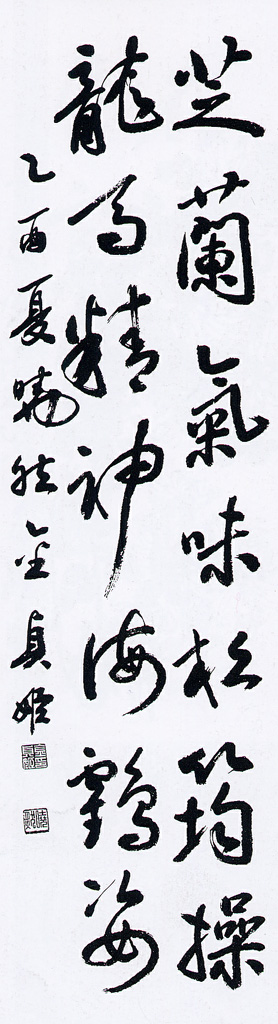 芝蘭氣味松筠操
龍馬精神海鶴姿
乙酉夏曉然金貞姬